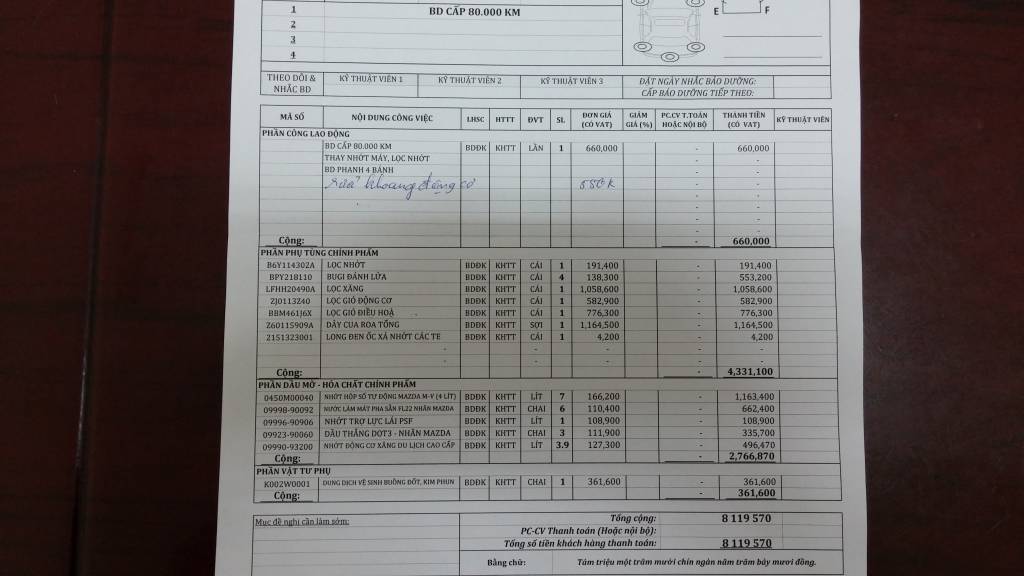 1 BD CẤP 80.000 KM
2
3
4
E F
THEO DÕI & NHẮC BD KỸ THUẬT VIÊN 1 KỸ THUẬT VIÊN 2 KỸ THUẬT VIÊN 3 ĐẶT NGÀY NHẮC BẢO DƯỠNG:
CẤP BẢO DƯỠNG TIẾP THEO:
MÃ SỐ NỘI DUNG CÔNG VIỆC LHSC HTTT ĐVT SL ĐƠN GIÁ (CÓ VAT) GIẢM GIÁ (%) PC.CV T.TOÁN HOẶC NỘI BỘ THÀNH TIỀN (CÓ VAT) KỸ THUẬT VIÊN
PHẦN CÔNG LAO ĐỘNG
BD CẤP 80.000 KM BDĐK KHTT LẦN 1 660,000 - 660,000
THAY NHỚT MÁY, LỌC NHỚT - -
BD PHANH 4 BÁNH - -
rửa khoang động cơ 550K - -
- -
- -
- -
Cộng: - 660,000
PHẦN PHỤ TÙNG CHÍNH PHẨM
B6Y114302A LỌC NHỚT BDĐK KHTT CÁI 1 191,400 - 191,400
BPY218110 BUGI ĐÁNH LỬA BDĐK KHTT CÁI 4 138,300 - 553,200
LFHH20490A LỌC XĂNG BDĐK KHTT CÁI 1 1,058,600 - 1,058,600
ZJ0113Z40 LỌC GIÓ ĐỘNG CƠ BDĐK KHTT CÁI 1 582,900 - 582,900
BBM461J6X LỌC GIÓ ĐIỀU HOÀ BDĐK KHTT CÁI 1 776,300 - 776,300
Z60115909A DÂY CUA ROA TỔNG BDĐK KHTT SỢI 1 1,164,500 - 1,164,500
2151323001 LONG ĐEN ỐC XẢ NHỚT CÁC TE BDĐK KHTT CÁI 1 4,200 - 4,200
- - - -
- - - -
Cộng: - 4,331,100
PHẦN DẦU MỠ - HÓA CHẤT CHÍNH PHẨM
0450M00040 NHỚT HỘP SỐ TỰ ĐỘNG MAZDA M-V (4 LÍT) BDĐK KHTT LÍT 7 166,200 - 1,163,400
09998-90092 NƯỚC LÀM MÁT PHA SẴN FL22 NHÃN MAZDA BDĐK KHTT CHAI 6 110,400 - 662,400
09996-90906 NHỚT TRỢ LỰC LÁI PSF BDĐK KHTT LÍT 1 108,900 - 108,900
09923-90060 DẦU THẮNG DOT3 - NHÃN MAZDA BDĐK KHTT CHAI 3 111,900 - 335,700
09990-93200 NHỚT ĐỘNG CƠ XĂNG DU LỊCH CAO CẤP BDĐK KHTT LÍT 3.9 127,300 - 496,470
Cộng: - 2,766,870
PHẦN VẬT TƯ PHỤ
K002W0001 DUNG DỊCH VỆ SINH BUỒNG ĐỐT, KIM PHUN BDĐK KHTT CHAI 1 361,600 - 361,600
Cộng: - 361,600
Mục đề nghị cần làm sớm: Tổng cộng: 8 119 570
PC-CV Thanh toán (Hoặc nội bộ):
Tổng số tiền khách hàng thanh toán: 8 119 570
Bằng chữ: Tám triệu một trăm mười chín ngàn năm trăm bảy mươi đồng.